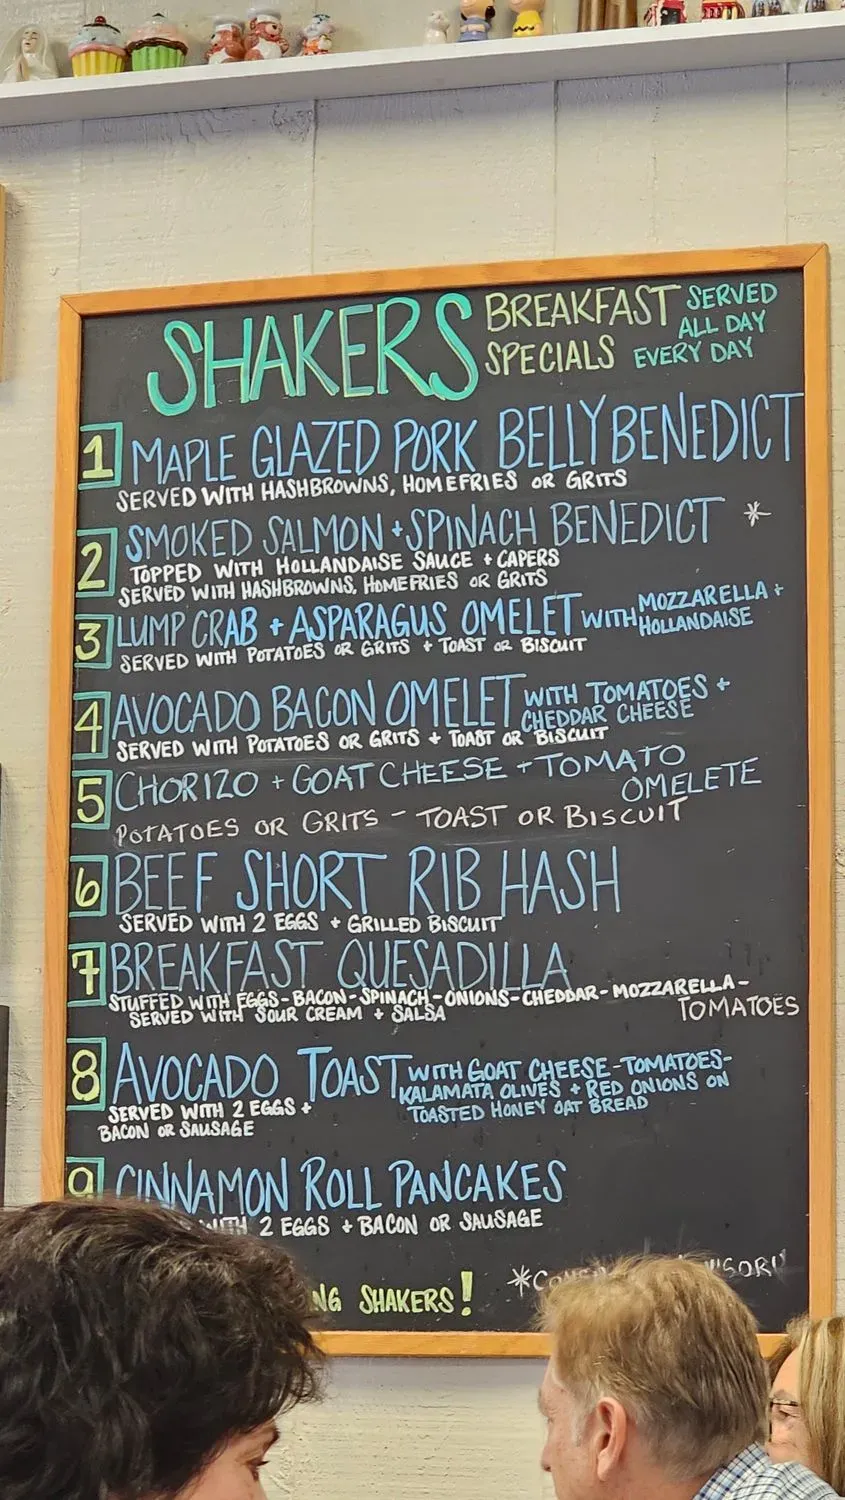 SHAKERS BREAKFAST SPECIALS
SERVED ALL DAY EVERY DAY
1 MAPLE GLAZED PORK BELLY BENEDICT
SERVED WITH HASHBROWNS, HOMEFRIES OR GRITS
2 SMOKED SALMON + SPINACH BENEDICT *
TOPPED WITH HOLLANDAISE SAUCE + CAPERS
SERVED WITH HASHBROWNS, HOMEFRIES OR GRITS
3 LUMP CRAB + ASPARAGUS OMELET WITH MOZZARELLA + HOLLANDAISE
SERVED WITH POTATOES OR GRITS + TOAST OR BISCUIT
4 AVOCADO BACON OMELET WITH TOMATOES + CHEDDAR CHEESE
SERVED WITH POTATOES OR GRITS + TOAST OR BISCUIT
5 CHORIZO + GOAT CHEESE + TOMATO
OMELETE
POTATOES OR GRITS - TOAST OR BISCUIT
6 BEEF SHORT RIB HASH
SERVED WITH 2 EGGS + GRILLED BISCUIT
7 BREAKFAST QUESADILLA
STUFFED WITH EGGS-BACON-SPINACH-ONIONS-CHEDDAR-MOZZARELLA-
TOMATOES
SERVED WITH SOUR CREAM + SALSA
8 AVOCADO TOAST WITH GOAT CHEESE-TOMATOES-
KALAMATA OLIVES + RED ONIONS ON
TOASTED HONEY OAT BREAD
SERVED WITH 2 EGGS +
BACON OR SAUSAGE
9 CINNAMON ROLL PANCAKES
WITH 2 EGGS + BACON OR SAUSAGE
SHAKERS!